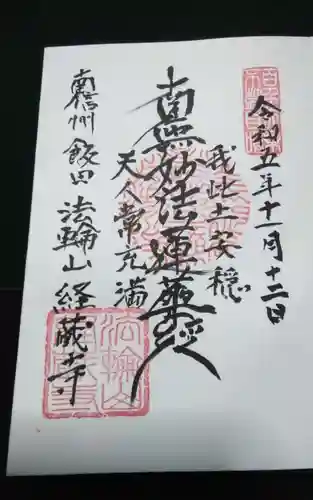 令和五年十一月十二日
我此土安穏
南無妙法蓮華経
天人常充満
南信州飯田法輪山経蔵寺